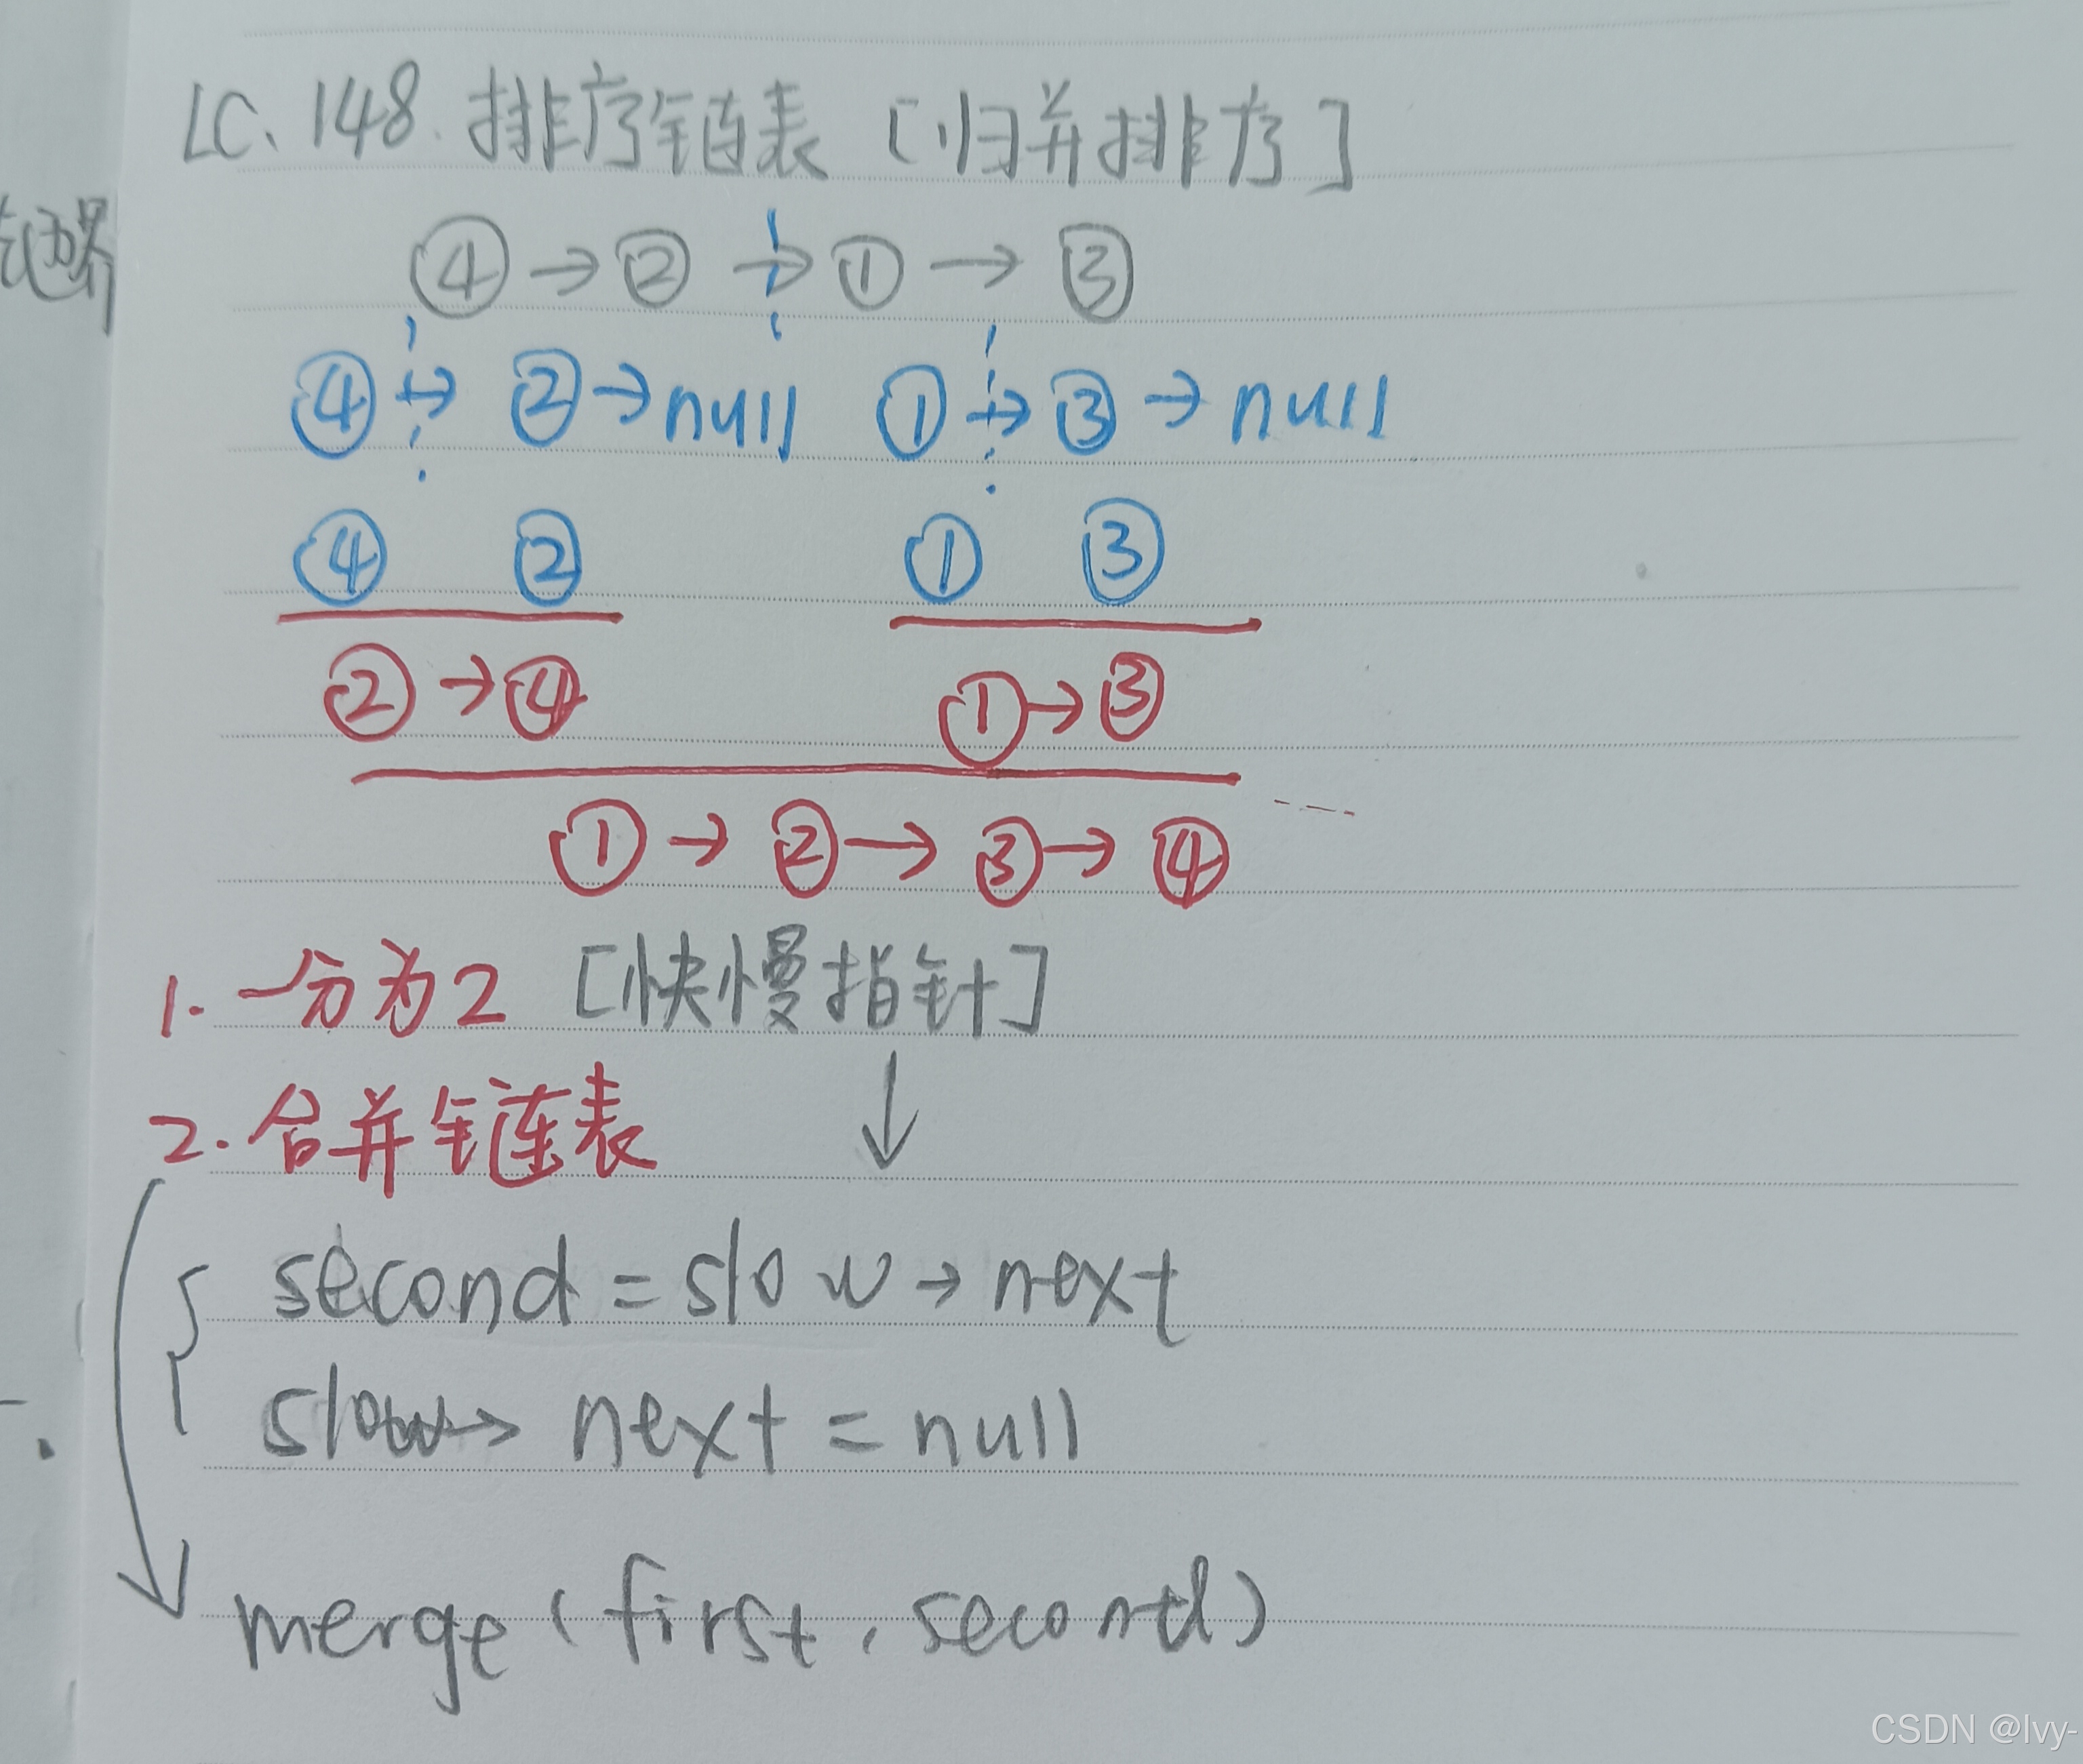 LC. 148. 排序链表 [归并排序]
边界
④ → ② → ① → ③
④ → ② → null ① → ③ → null
④ ② ① ③
② → ④ ① → ③
① → ② → ③ → ④
1. 一分为2 [快慢指针]
↓
2. 合并链表
second = slow → next
slow → next = null
merge (first, second)
CSDN @Ivy-